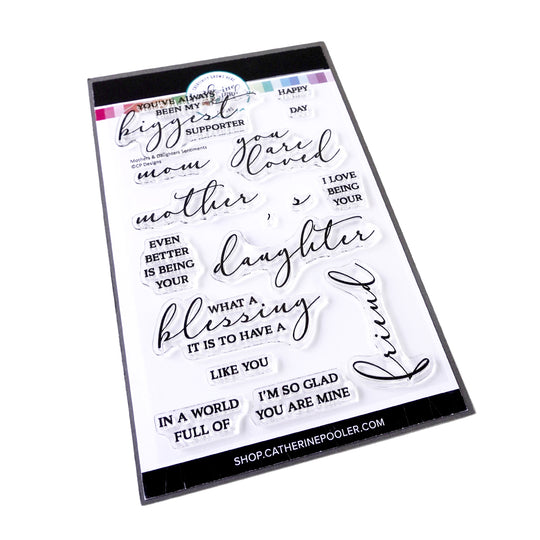 YOU'VE ALWAYS
BEEN MY
biggest
SUPPORTER
HAPPY
DAY
Mothers & Daughters Sentiments
©CP Designs
you
are
loved
mom
mother
's
I LOVE
BEING
YOUR
EVEN
BETTER
IS BEING
YOUR
daughter
WHAT A
blessing
IT IS TO HAVE A
friend
LIKE YOU
IN A WORLD
FULL OF
I'M SO GLAD
YOU ARE MINE
SHOP.CATHERINEPOOLER.COM